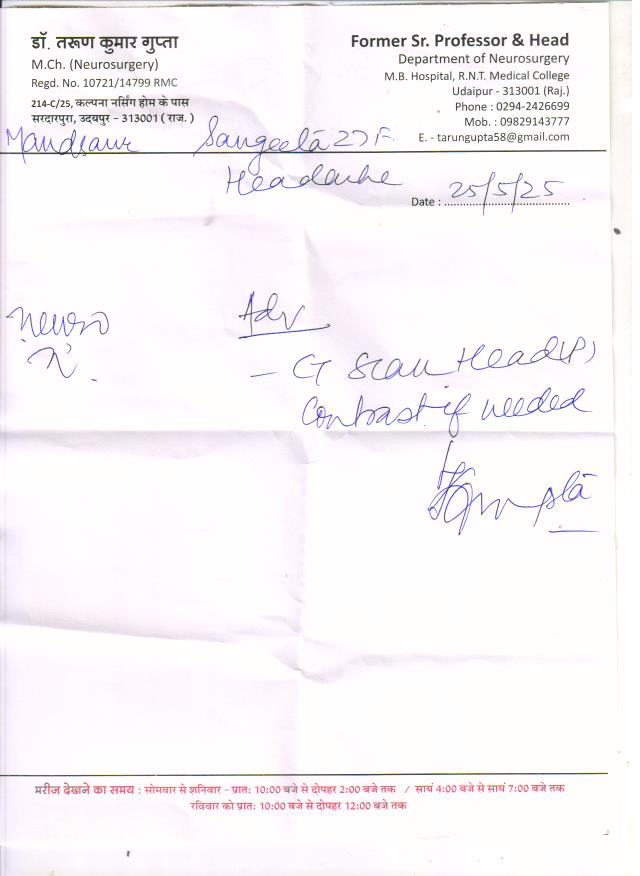 डॉ. तरूण कुमार गुप्ता
M.Ch. (Neurosurgery)
Regd. No. 10721/14799 RMC
214-C/25, कल्पना नर्सिंग होम के पास
सरदारपुरा, उदयपुर – 313001 ( राज. )
Former Sr. Professor & Head
Department of Neurosurgery
M.B. Hospital, R.N.T. Medical College
Udaipur - 313001 (Raj.)
Phone : 0294-2426699
Mob. : 09829143777
E. - tarungupta58@gmail.com
Mandsaur Sangeeta 27 F.
Headache
Date : 25/5/25
Neuro
N.
Adv
– CT Scan Head (P)
Contrast if needed
Gupta
मरीज देखने का समय : सोमवार से शनिवार – प्रातः 10:00 बजे से दोपहर 2:00 बजे तक / सायं 4:00 बजे से सायं 7:00 बजे तक
रविवार को प्रातः 10:00 बजे से दोपहर 12:00 बजे तक